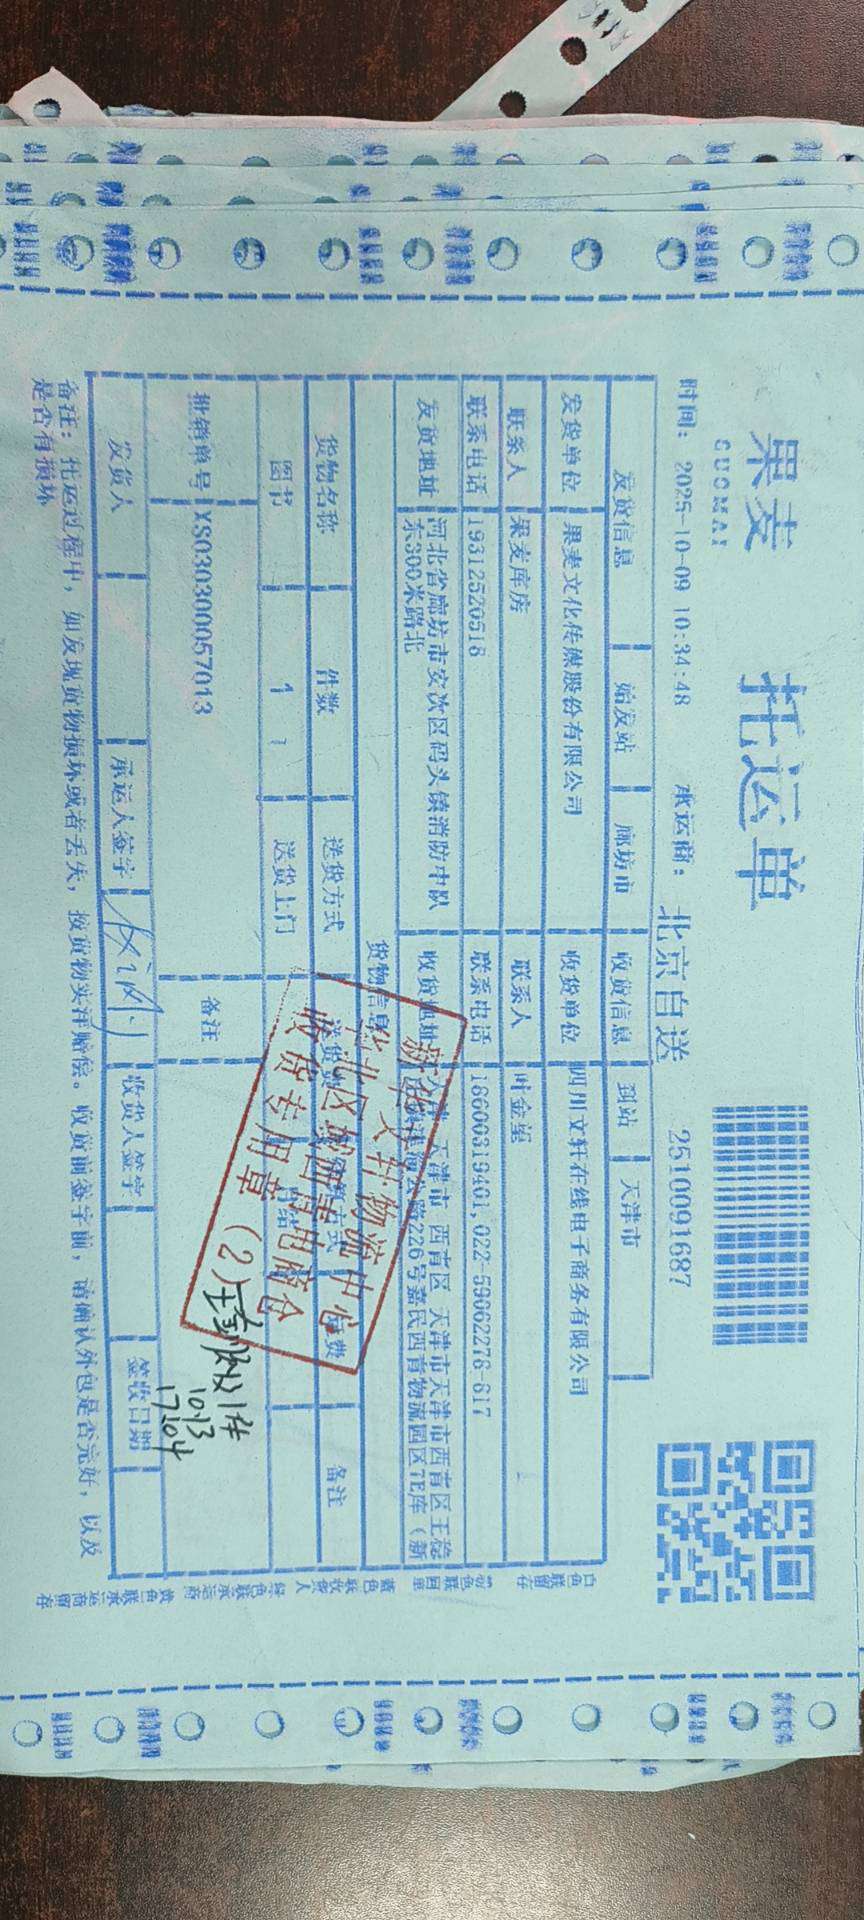 果麦
GUOMAI
托运单
时间： 2025-10-09 10:34:48 承运商： 北京自送 2510091687
发货信息 始发站 廊坊市 收货信息 到站 天津市
发货单位 果麦文化传媒股份有限公司 收货单位 四川文轩在线电子商务有限公司
联系人 果麦库房 联系人 叶金玺
联系电话 19312520518 联系电话 18600319401,022-59062276-617
发货地址 河北省廊坊市安次区码头镇消防中队东300米路北 收货地址 天津市 西青区 天津市天津市西青区王稳庄镇津淄公路226号嘉民西青物流园区7E库（新
货物信息
货物名称 件数 送货方式 备注
图书 1 1 送货上门
批销单号 XS030300057013 备注
发货人 承运人签字 收货人签字 签收日期
备注：托运过程中，如发现货物损坏或者丢失，按货物实洋赔偿。收货前签字前，请确认外包是否完好，以及
是否有损坏
新华文轩物流中心
收货专用章（2）
收1件
10.13
17:04
白色联留存
蓝色联收货人
绿色联承运商
黄色联承运商留存